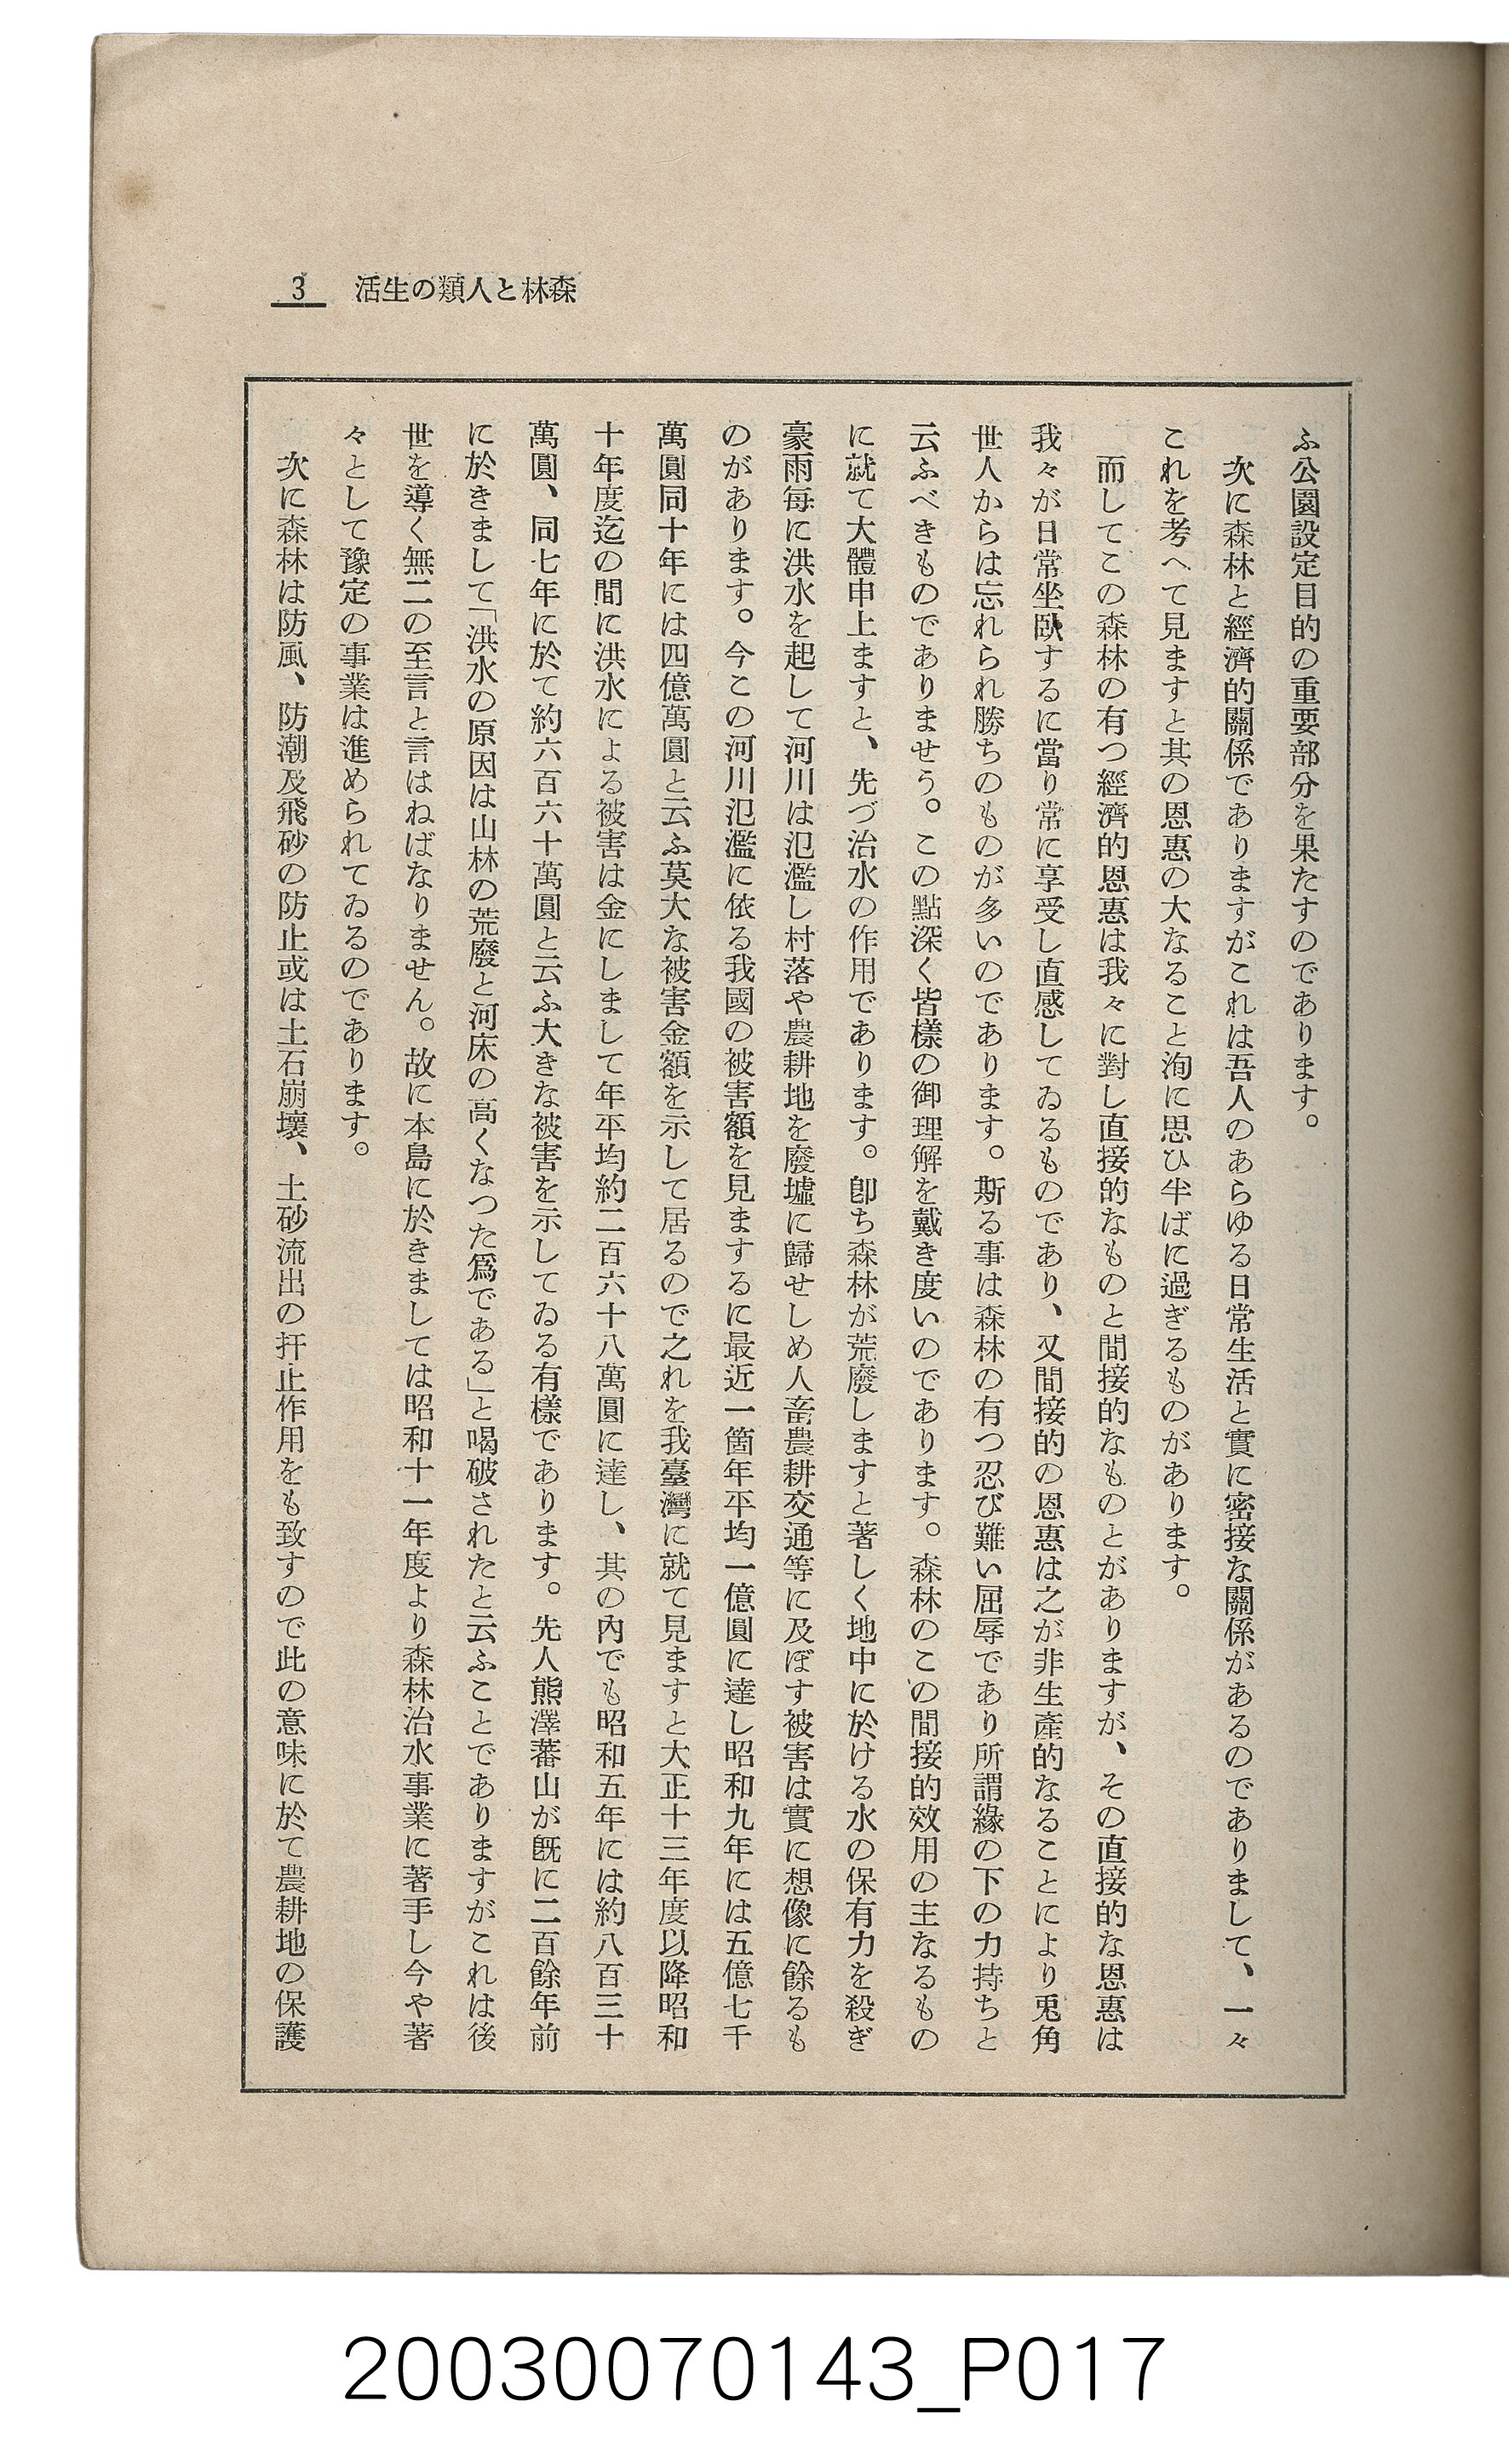 森林と人類の生活 3
ふ公園設定目的の重要部分を果たすのであります。
次に森林と經濟的關係でありますがこれは吾人のあらゆる日常生活と實に密接な關係があるのでありまして、一々
これを考へて見ますと其の恩惠の大なること洵に思ひ半ばに過ぎるものがあります。
而してこの森林の有つ經濟的恩惠は我々に對し直接的なものと間接的なものとがありますが、その直接的な恩惠は
我々が日常坐臥するに當り常に享受し直感してゐるものであり、又間接的の恩惠は之が非生產的なることにより兎角
世人からは忘れられ勝ちのものが多いのであります。斯る事は森林の有つ忍び難い屈辱であり所謂緣の下の力持ちと
云ふべきものでありませう。この點深く皆樣の御理解を戴き度いのであります。森林のこの間接的效用の主なるもの
に就て大體申上ますと、先づ治水の作用であります。卽ち森林が荒廢しますと著しく地中に於ける水の保有力を殺ぎ
豪雨每に洪水を起して河川は氾濫し村落や農耕地を廢墟に歸せしめ人畜農耕交通等に及ぼす被害は實に想像に餘るも
のがあります。今この河川氾濫に依る我國の被害額を見まするに最近一箇年平均一億圓に達し昭和九年には五億七千
萬圓同十年には四億萬圓と云ふ莫大な被害金額を示して居るので之れを我臺灣に就て見ますと大正十三年度以降昭和
十年度迄の間に洪水による被害は金にしまして年平均約二百六十八萬圓に達し、其の內でも昭和五年には約八百三十
萬圓、同七年に於て約六百六十萬圓と云ふ大きな被害を示してゐる有樣であります。先人熊澤蕃山が旣に二百餘年前
に於きまして「洪水の原因は山林の荒廢と河床の高くなつた爲である」と喝破されたと云ふことでありますがこれは後
世を導く無二の至言と言はねばなりません。故に本島に於きましては昭和十一年度より森林治水事業に著手し今や著
々として豫定の事業は進められてゐるのであります。
次に森林は防風、防潮及飛砂の防止或は土石崩壞、土砂流出の扞止作用をも致すので此の意味に於て農耕地の保護
20030070143_P017